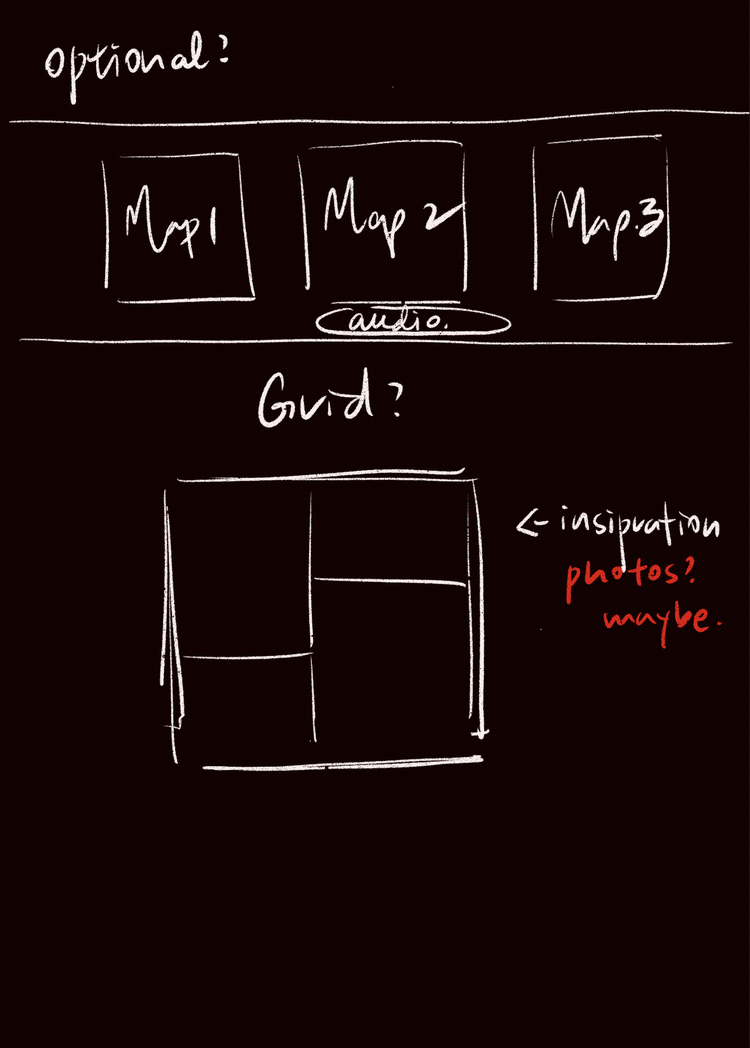 optional?
Map1 Map 2 Map.3
audio.
Grid?
← insipration
photos?
maybe.